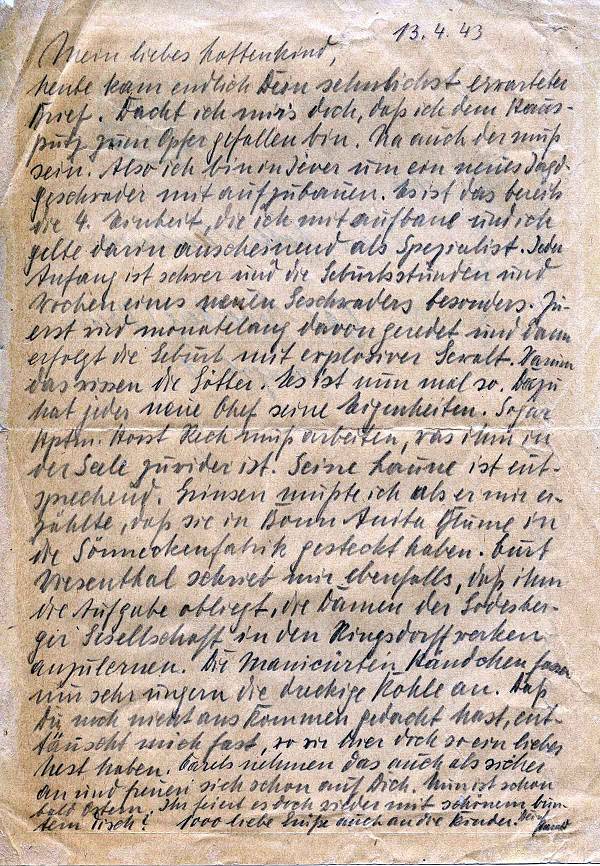 13.4.43
Mein liebes Lottenkind,
heute kam endlich Dein sehnlichst erwarteter
Brief. Dacht ich mir's doch, daß ich dem Haus-
putz zum Opfer gefallen bin. Na auch der muß
sein. Also ich bin in Jever um ein neues Jagd-
geschwader mit aufzubauen. Es ist das bereits
die 4. Einheit, die ich mit aufbaue und ich
gelte darin anscheinend als Spezialist. Jeder
Anfang ist schwer und die Geburtsstunden und
Wochen eines neuen Geschwaders besonders. Zu-
erst wird monatelang davon geredet und dann
erfolgt die Geburt mit explosiver Gewalt. Warum
das wissen die Götter. Es ist nun mal so. Dazu
hat jeder neue Chef seine Eigenheiten. Sogar
Hptm. Horst muß arbeiten, was ihm in
der Seele zuwider ist. Seine Laune ist ent-
sprechend. Grinsen mußte ich als er mir er-
zählte, daß sie in Bonn Anita Blume in
die Sönneckenfabrik gesteckt haben. Curt
Wiesenthal schrieb mir ebenfalls, daß ihm
die Aufgabe obliegt, die Damen der Godesber-
ger Gesellschaft in den Ringsdorffwerken
anzulernen. Die Manicürten Händchen fassen
nun sehr ungern die dreckige Kohle an. Daß
Du noch nicht ans Kommen gedacht hast, ent-
täuscht mich fast, wo wir hier doch so ein liebes
Nest haben. nehmen das auch als sicher
an und freuen sich schon auf Dich. Nun ist schon
bald Ostern. Ihr feiert es doch wieder mit schönem bun-
tem Tisch! 1000 liebe Grüße auch an die Kinder. Dein